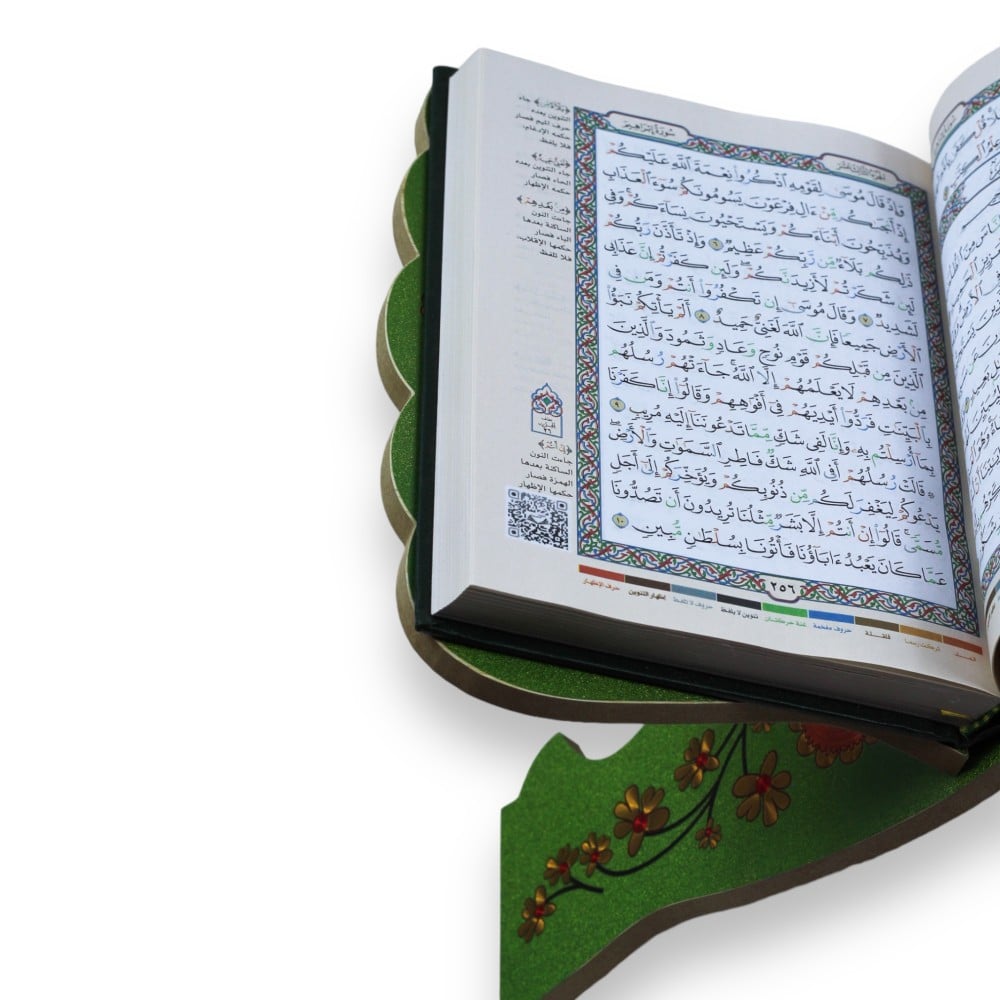 سُورَةُ إِبْرَاهِيمَ
وَإِذْ قَالَ مُوسَىٰ لِقَوْمِهِ ٱذْكُرُوا۟ نِعْمَةَ ٱللَّهِ عَلَيْكُمْ
إِذْ أَنجَىٰكُم مِّنْ ءَالِ فِرْعَوْنَ يَسُومُونَكُمْ سُوٓءَ ٱلْعَذَابِ
وَيُذَبِّحُونَ أَبْنَآءَكُمْ وَيَسْتَحْيُونَ نِسَآءَكُمْ ۚ وَفِى
ذَٰلِكُم بَلَآءٌ مِّن رَّبِّكُمْ عَظِيمٌ ٦ وَإِذْ تَأَذَّنَ رَبُّكُمْ
لَئِن شَكَرْتُمْ لَأَزِيدَنَّكُمْ ۖ وَلَئِن كَفَرْتُمْ إِنَّ عَذَابِى
لَشَدِيدٌ ٧ وَقَالَ مُوسَىٰٓ إِن تَكْفُرُوٓا۟ أَنتُمْ وَمَن فِى
ٱلْأَرْضِ جَمِيعًا فَإِنَّ ٱللَّهَ لَغَنِىٌّ حَمِيدٌ ٨ أَلَمْ يَأْتِكُمْ نَبَؤُا۟
ٱلَّذِينَ مِن قَبْلِكُمْ قَوْمِ نُوحٍ وَعَادٍ وَثَمُودَ وَٱلَّذِينَ
مِنۢ بَعْدِهِمْ لَا يَعْلَمُهُمْ إِلَّا ٱللَّهُ ۚ جَآءَتْهُمْ رُسُلُهُم
بِٱلْبَيِّنَٰتِ فَرَدُّوٓا۟ أَيْدِيَهُمْ فِىٓ أَفْوَٰهِهِمْ وَقَالُوٓا۟ إِنَّا كَفَرْنَا
بِمَآ أُرْسِلْتُم بِهِۦ وَإِنَّا لَفِى شَكٍّ مِّمَّا تَدْعُونَنَآ إِلَيْهِ مُرِيبٍ ٩
۞ قَالَتْ رُسُلُهُمْ أَفِى ٱللَّهِ شَكٌّ فَاطِرِ ٱلسَّمَٰوَٰتِ وَٱلْأَرْضِ ۖ
يَدْعُوكُمْ لِيَغْفِرَ لَكُم مِّن ذُنُوبِكُمْ وَيُؤَخِّرَكُمْ إِلَىٰٓ أَجَلٍ
مُّسَمًّى ۚ قَالُوٓا۟ إِنْ أَنتُمْ إِلَّا بَشَرٌ مِّثْلُنَا تُرِيدُونَ أَن تَصُدُّونَا
عَمَّا كَانَ يَعْبُدُ ءَابَآؤُنَا فَأْتُونَا بِسُلْطَٰنٍ مُّبِينٍ ١٠
٢٥٦
جاء
التنوين بعده
حرف الميم فصار
حكمه الإدغام،
فلا يلفظ.
جاء التنوين بعده
الحاء فصار
حكمه الإظهار
﴿مِنۢ بَعْدِهِمْ﴾
جاءت النون
الساكنة بعدها
الباء فصار
حكمها الإقلاب،
فلا تلفظ
﴿إِنْ أَنتُمْ﴾
جاءت النون
الساكنة بعدها
الهمزة فصار
حكمها الإظهار
المد
تركت رسما
قلقلة
حروف مفخمة
غنة حركتان
تنوين لا يلفظ
حروف لا تلفظ
إظهار التنوين
حرف الإظهار